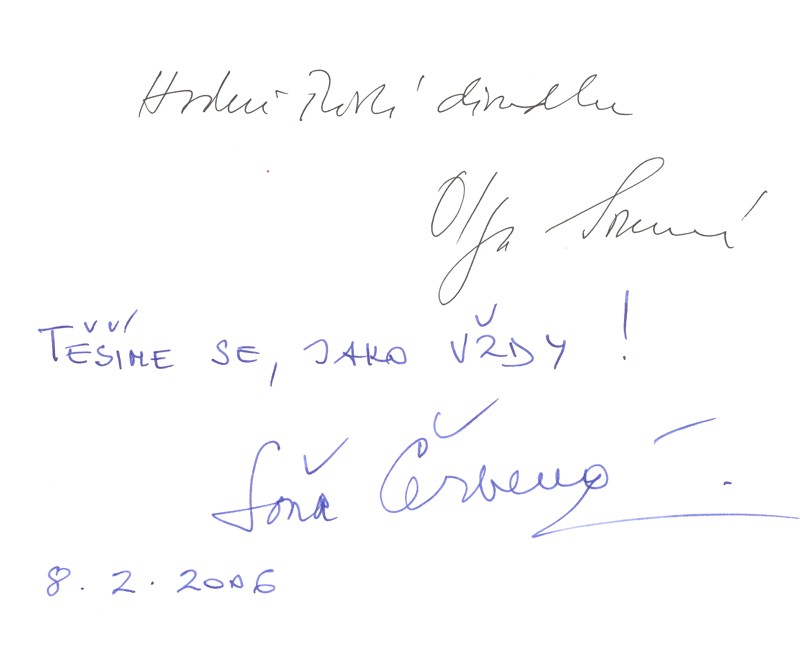 Hodně divadlu
Olga
TĚŠÍME SE, JAKO VŽDY !
Soňa Červená
8. 2. 2006